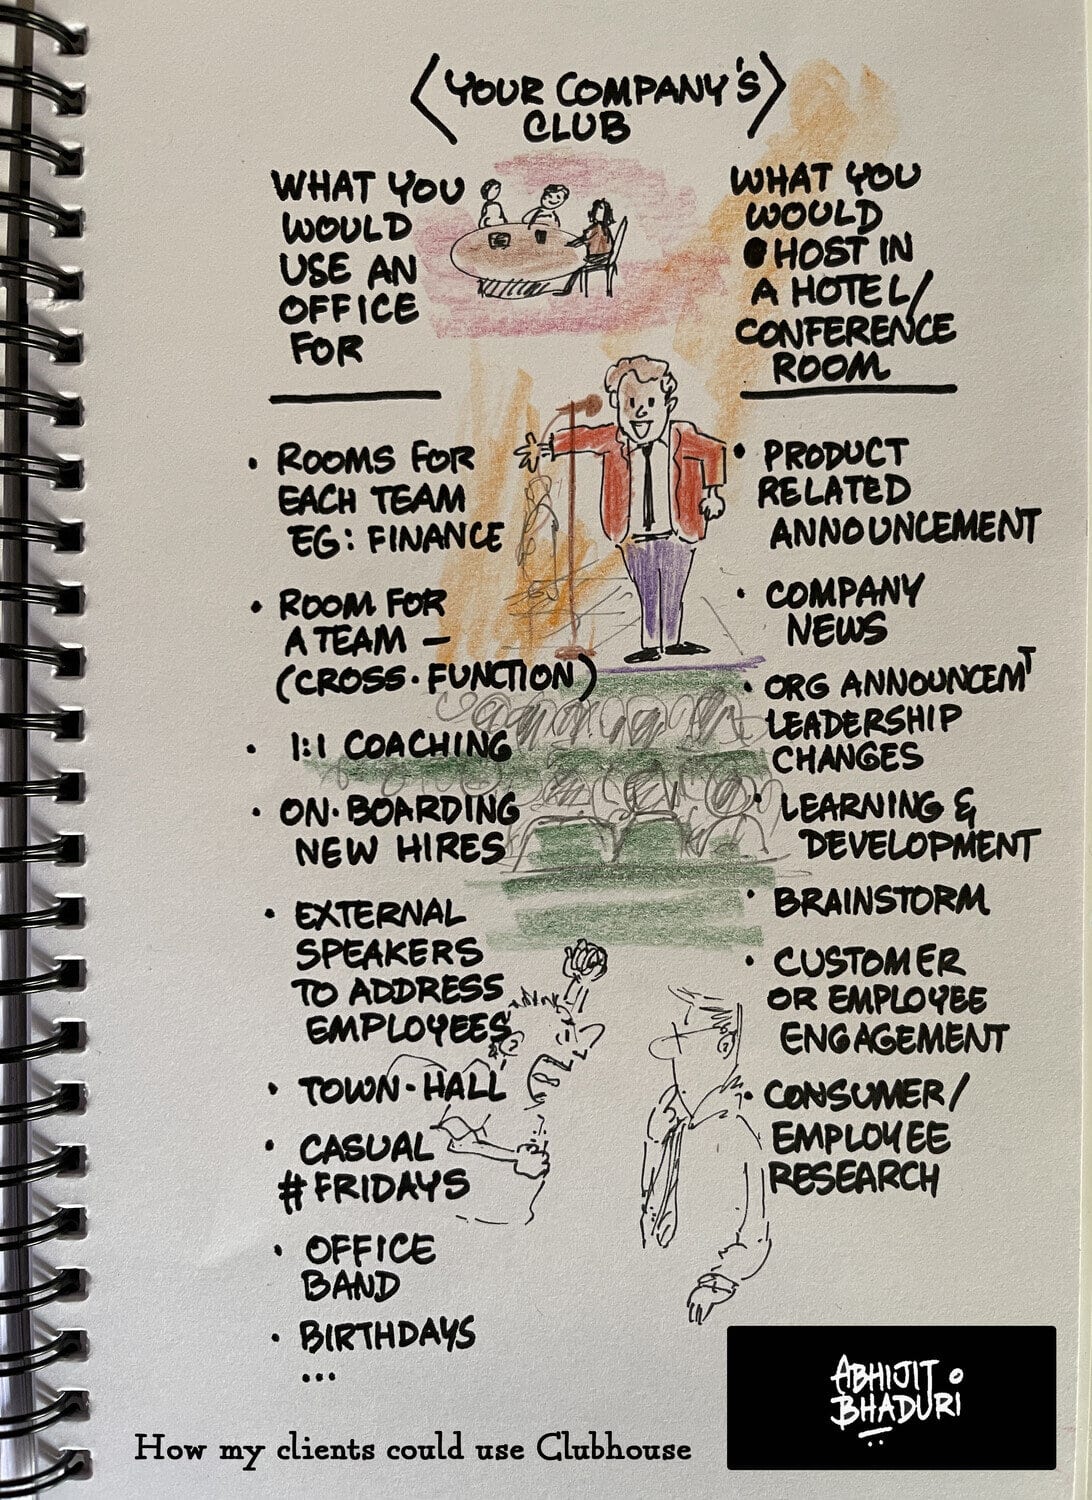 <YOUR COMPANY'S>
CLUB
WHAT YOU
WOULD
USE AN
OFFICE
FOR
• ROOMS FOR
EACH TEAM
EG: FINANCE
• ROOM FOR
A TEAM –
(CROSS·FUNCTION)
• 1:1 COACHING
• ON·BOARDING
NEW HIRES
• EXTERNAL
SPEAKERS
TO ADDRESS
EMPLOYEES
• TOWN-HALL
• CASUAL
#FRIDAYS
• OFFICE
BAND
• BIRTHDAYS
...
WHAT YOU
WOULD
HOST IN
A HOTEL/
CONFERENCE
ROOM
• PRODUCT
RELATED
ANNOUNCEMENT
• COMPANY
NEWS
• ORG ANNOUNCEMT
LEADERSHIP
CHANGES
• LEARNING &
DEVELOPMENT
• BRAINSTORM
• CUSTOMER
OR EMPLOYEE
ENGAGEMENT
• CONSUMER/
EMPLOYEE
RESEARCH
ABHIJIT
BHADURI
How my clients could use Clubhouse